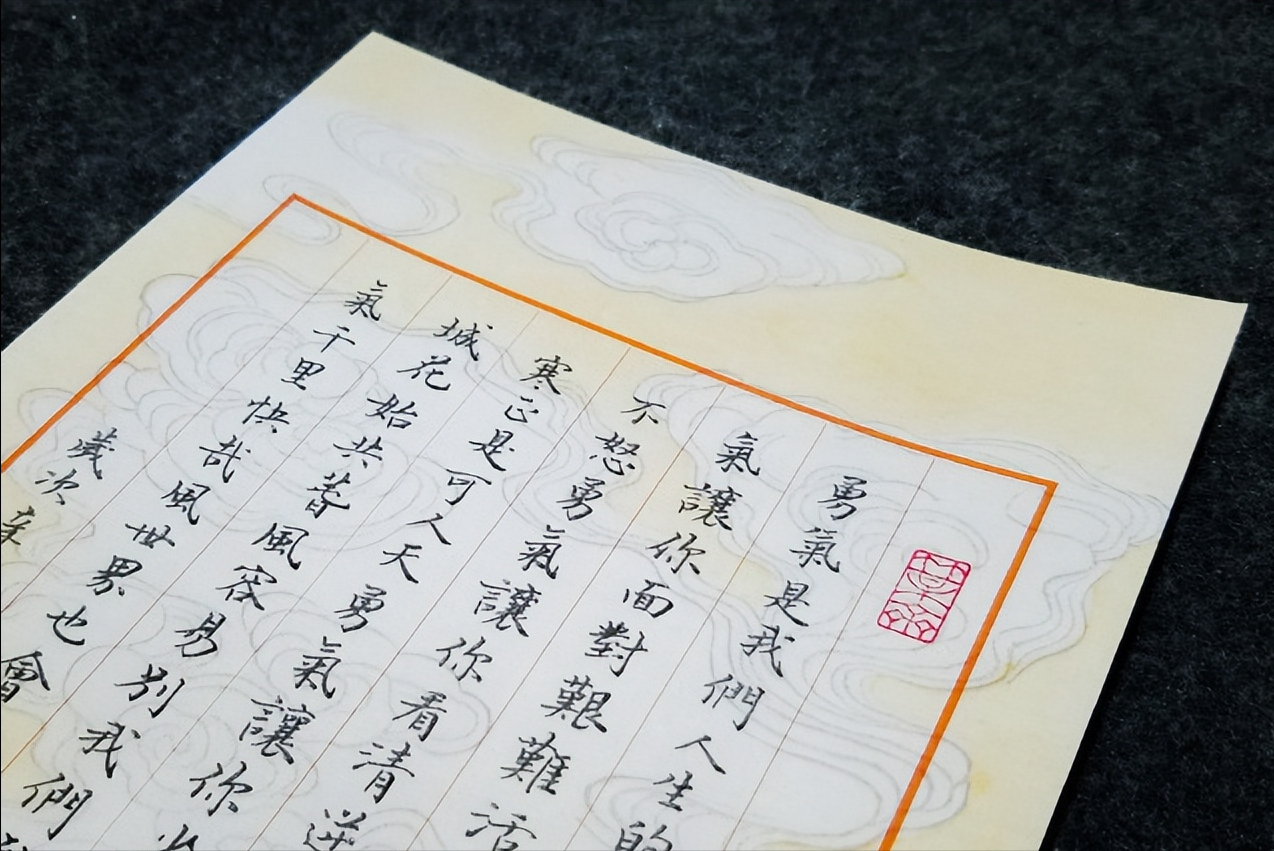 勇氣是我們人生的
氣讓你面對艱難活
不怒勇氣讓你看清逆
寒正是可人天勇氣讓你
城花始共春風容易別我們
氣千里快哉風世界也會
歲次辛